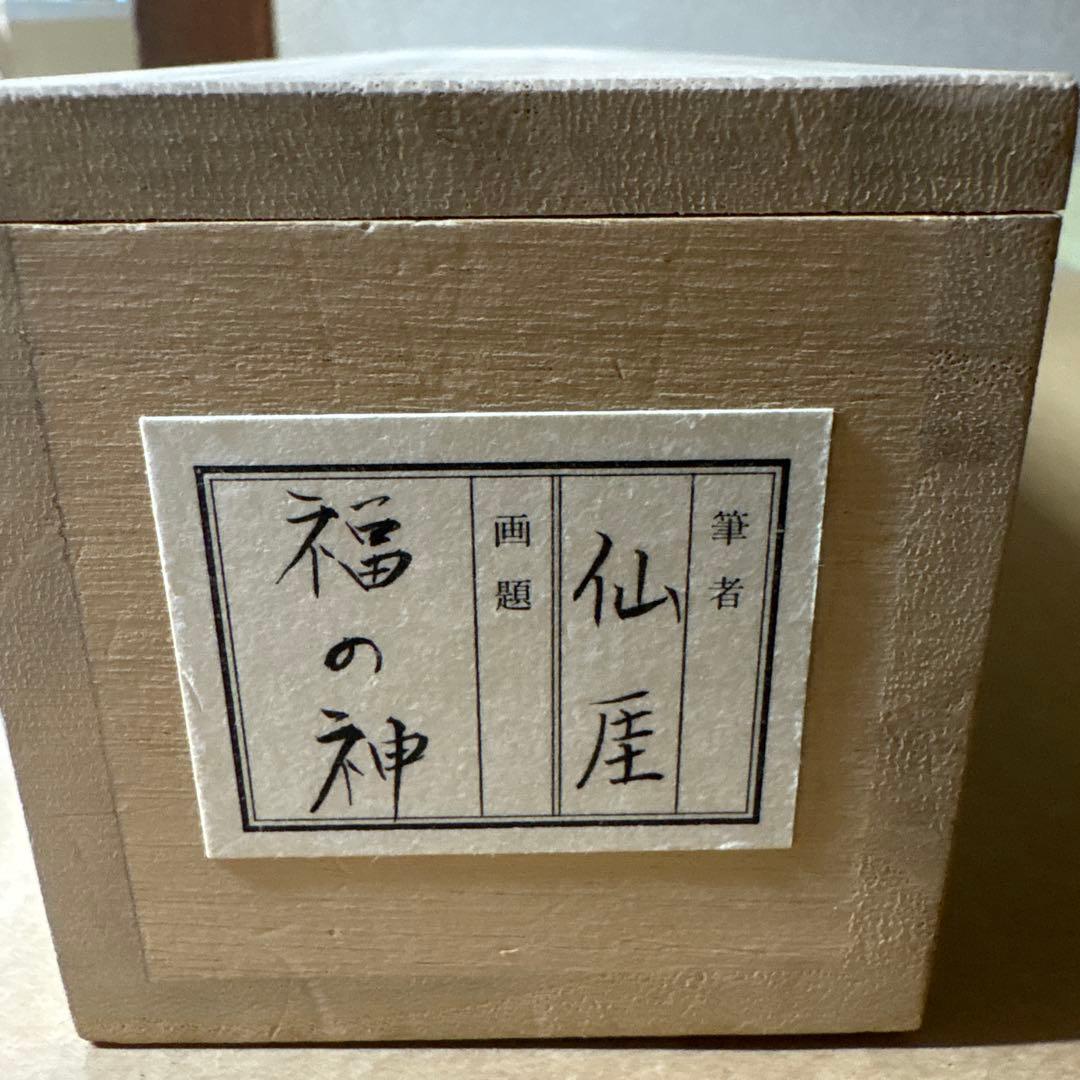 筆者
仙厓
画題
福の神